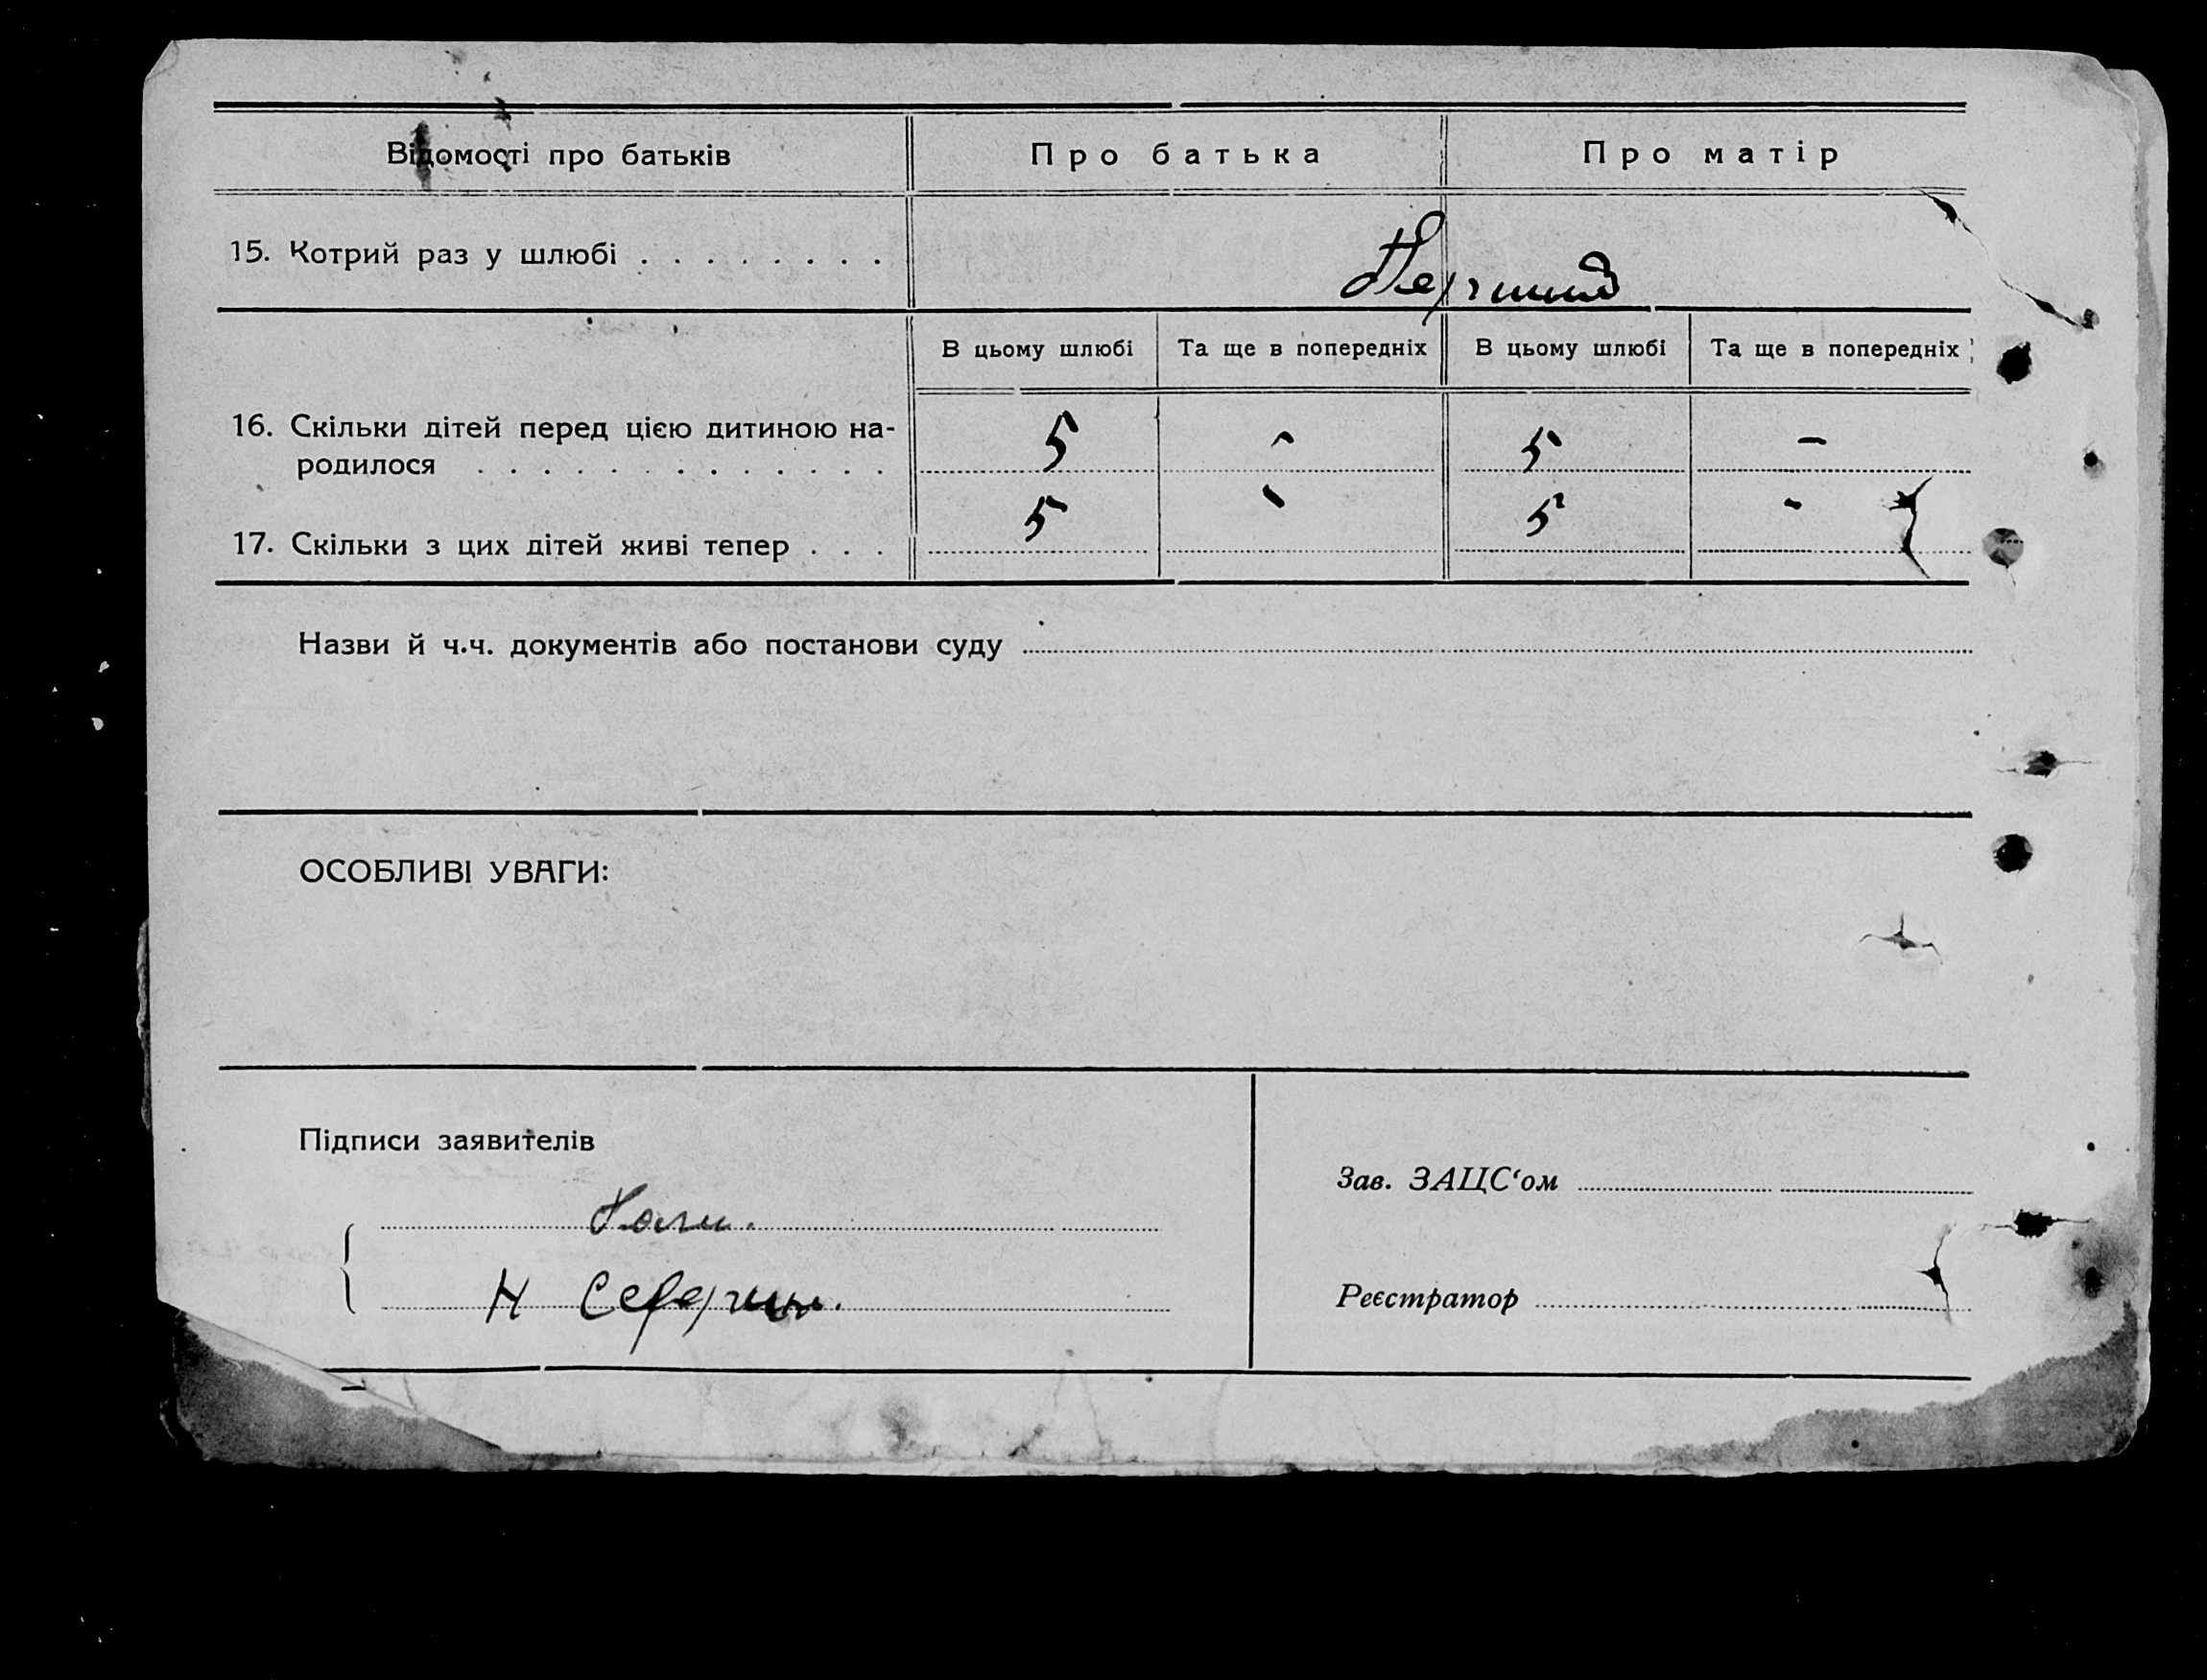 Відомості про батьків Про батька Про матір
15. Котрий раз у шлюбі . . . . . . . . Перший
В цьому шлюбі Та ще в попередніх В цьому шлюбі Та ще в попередніх
16. Скільки дітей перед цією дитиною на-
родилося . . . . . . . . . . . . . 5 - 5 -
17. Скільки з цих дітей живі тепер . . . 5 - 5 -
Назви й ч.ч. документів або постанови суду
ОСОБЛИВІ УВАГИ:
Підписи заявителів
Зав. ЗАЦС‘ом
Н
Реєстратор